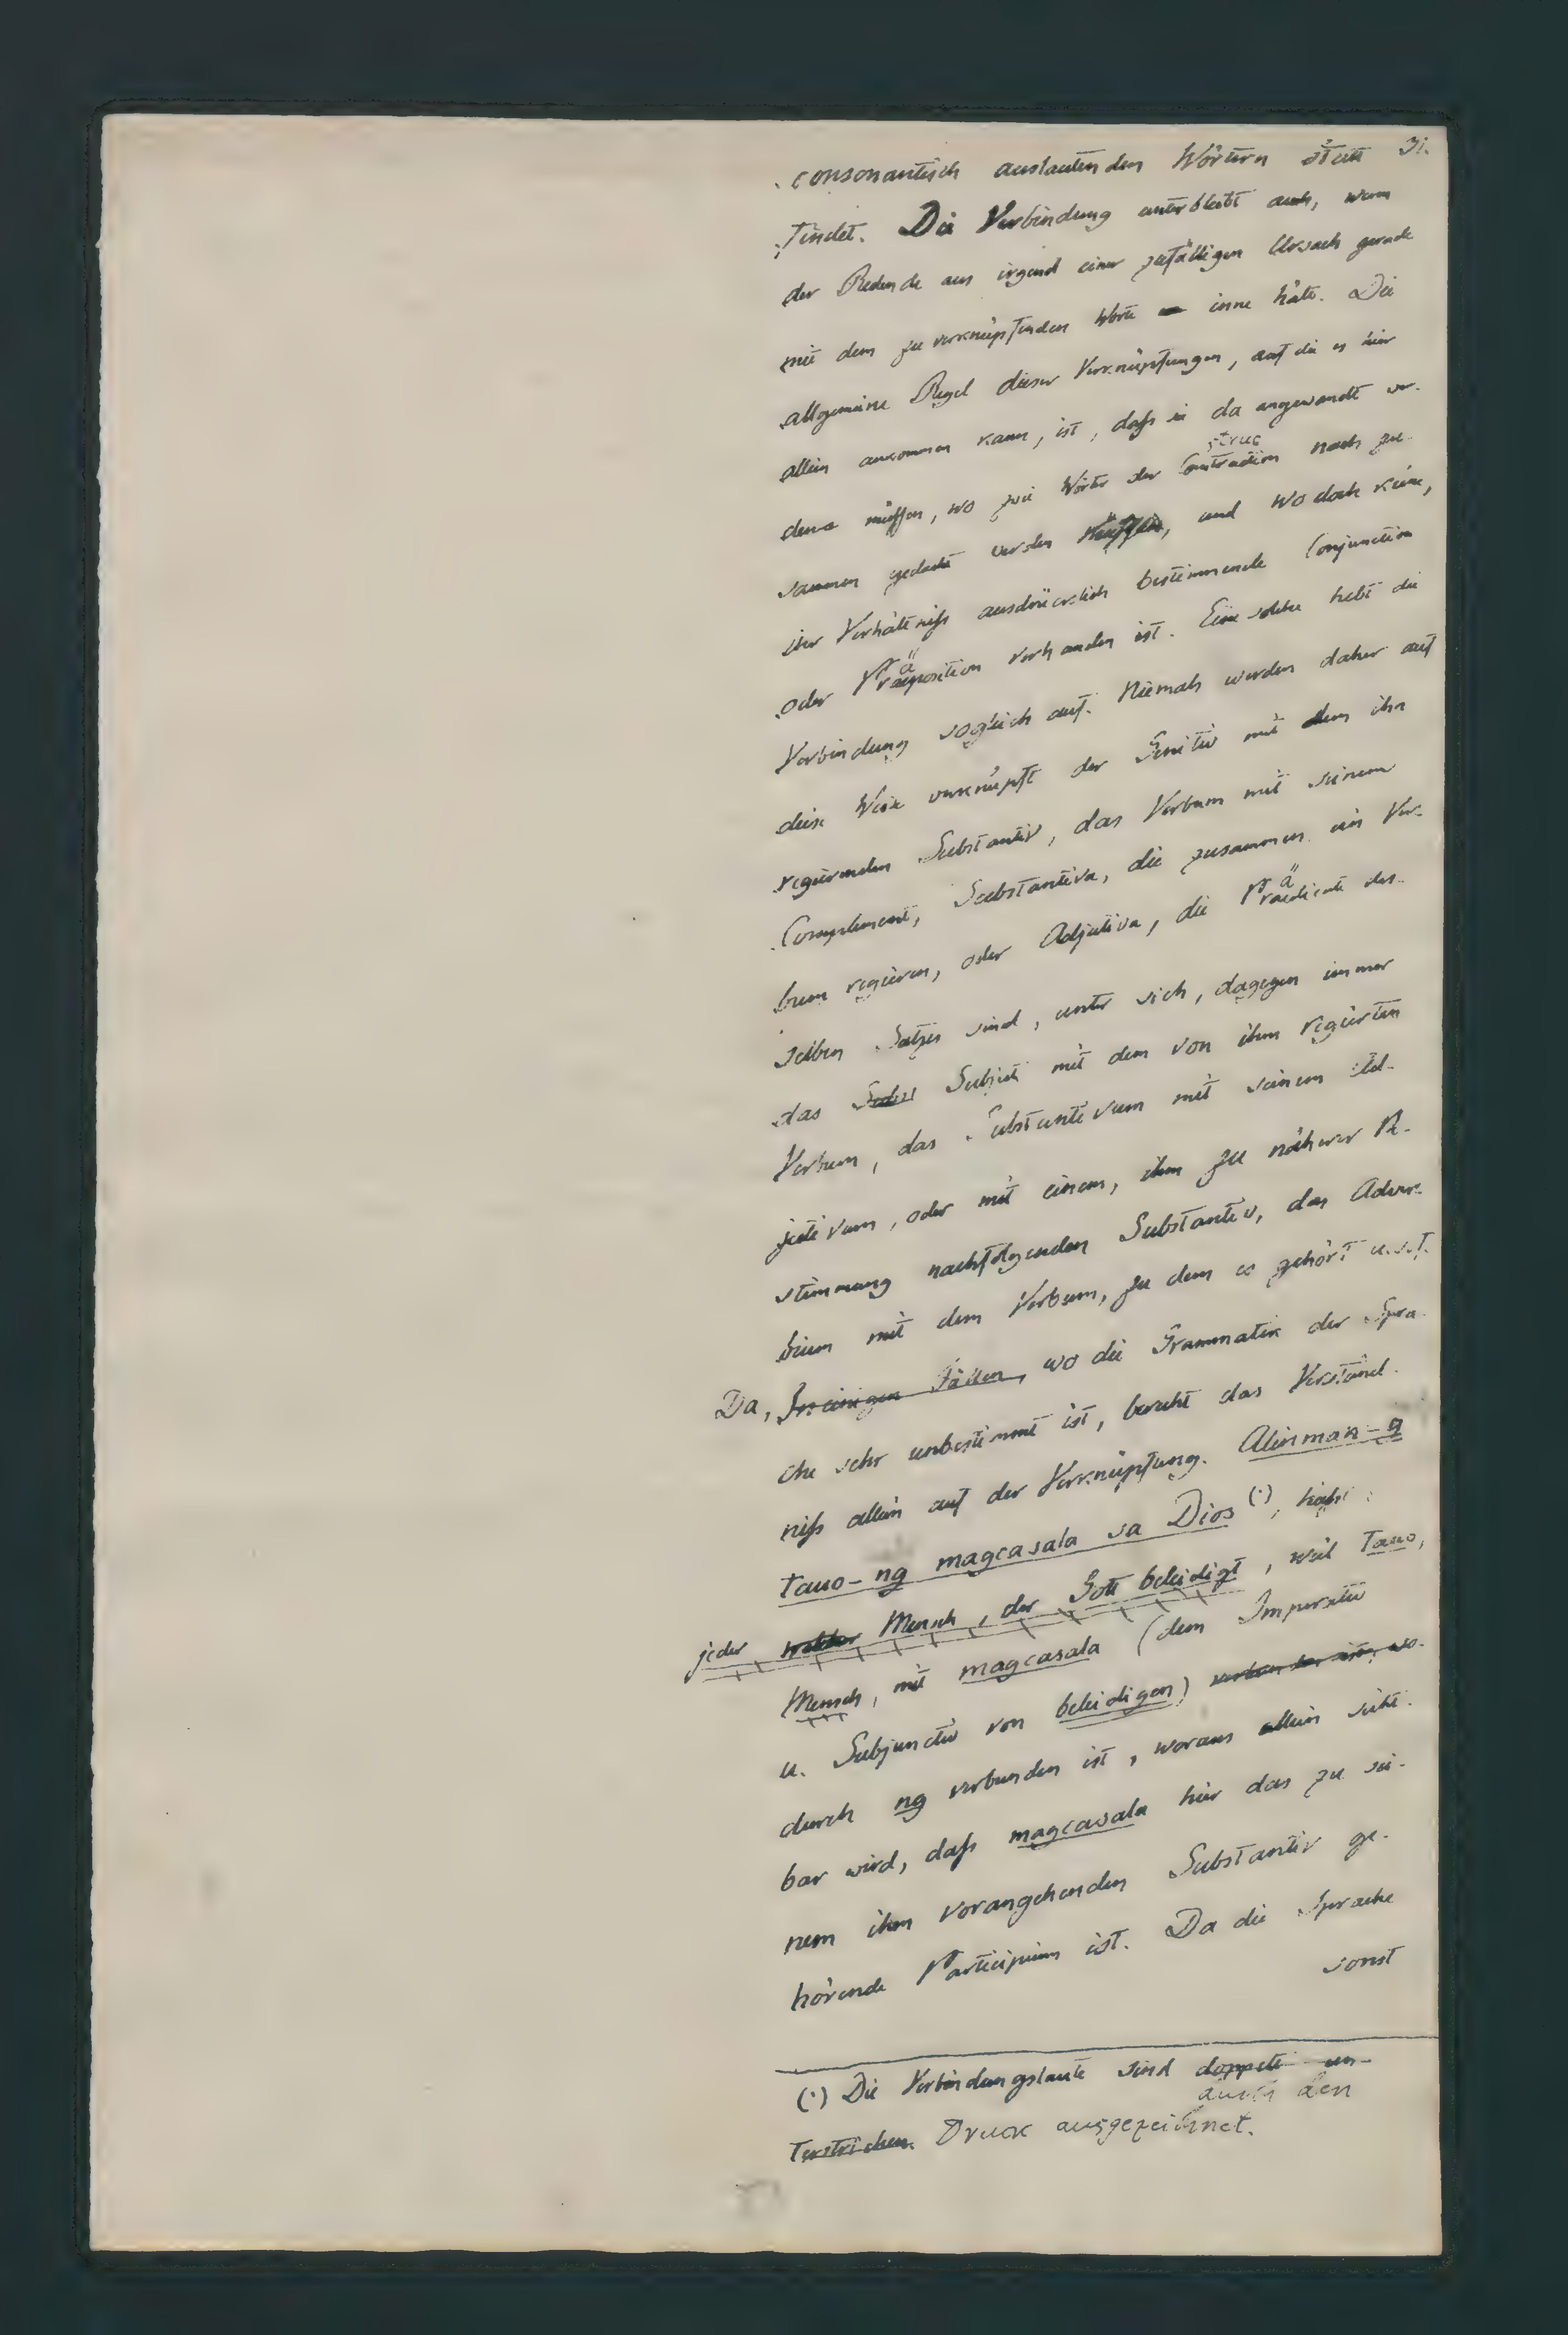 consonantisch auslautenden Wörtern statt 31.
findet. Die Verbindung unterbleibt auch, wenn
der Redende aus irgend einer zufälligen Ursach gerade
mit dem zu verknüpfenden Worte inne hält. Die
allgemeine Regel dieser Verknüpfungen, auf die es hier
allein ankommen kann, ist, daß sie da angewandt wer-
den müssen, wo zwei Wörter der Construction nach zu-
sammen gedacht werden müssen, und wo doch keine,
ihr Verhältniß ausdrücklich bestimmende Conjunction
oder Präposition vorhanden ist. Eine solche hebt die
Verbindung sogleich auf. Niemals werden daher auf
diese Weise verknüpft der Genitiv mit dem ihn
regierenden Substantiv, das Verbum mit seinem
Complement, Substantiva, die zusammen ein Ver-
bum regieren, oder Adjectiva, die Prädicate des-
selben Satzes sind, unter sich, dagegen immer
das Subject mit dem von ihm regierten
Verbum, das Substantivum mit seinem Ad-
jectivum, oder mit einem, ihm zu näherer Be-
stimmung nachfolgenden Substantiv, das Adver-
bium mit dem Verbum, zu dem es gehört u.s.f.
Da, In einigen Fällen, wo die Grammatik der Spra-
che sehr unbestimmt ist, beruht das Verständ-
niß allein auf der Verknüpfung. Alinman-g
tauo-ng magcasala sa Dios (·), heißt:
jeder welcher Mensch, der Gott beleidigt, weil tauo,
Mensch, mit magcasala (dem Imperativ
u. Subjunctiv von beleidigen) verbunden ist, wo-
durch ng verbunden ist, woraus allein sicht-
bar wird, daß magcasala hier das zu sei-
nem ihm vorangehenden Substantiv ge-
hörende Participium ist. Da die Sprache
sonst
(·) Die Verbindungslaute sind doppelt un-
durch den
terstrichen. Druck ausgezeichnet.